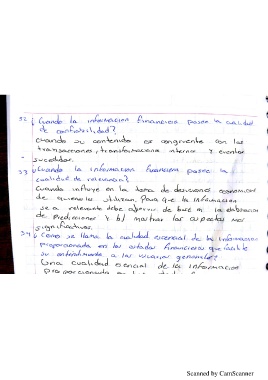 32 ¿Cuando la informacion financiera posee la cualidad
de confiabilidad?
Cuando su contenido es congruente con las
transacciones, transformaciones internas y eventos
sucedidos.
33 ¿Cuando la informacion financiera posee la
cualidad de relevancia?
Cuando influye en la toma de decisiones economicas
de quienes la utilizan, Para que la informacion
sea relevante debe a) servir de base en la elaboracion
de Predicciones y b) mostrar los aspectos mas
significativos.
34 ¿Como se llama la cualidad esencial de la informacion
proporcionada en los estados financieros que facilite
su entendimiento a los usuarios generales?
Una cualidad esencial de la informacion
Proporcionada en
Scanned by CamScanner